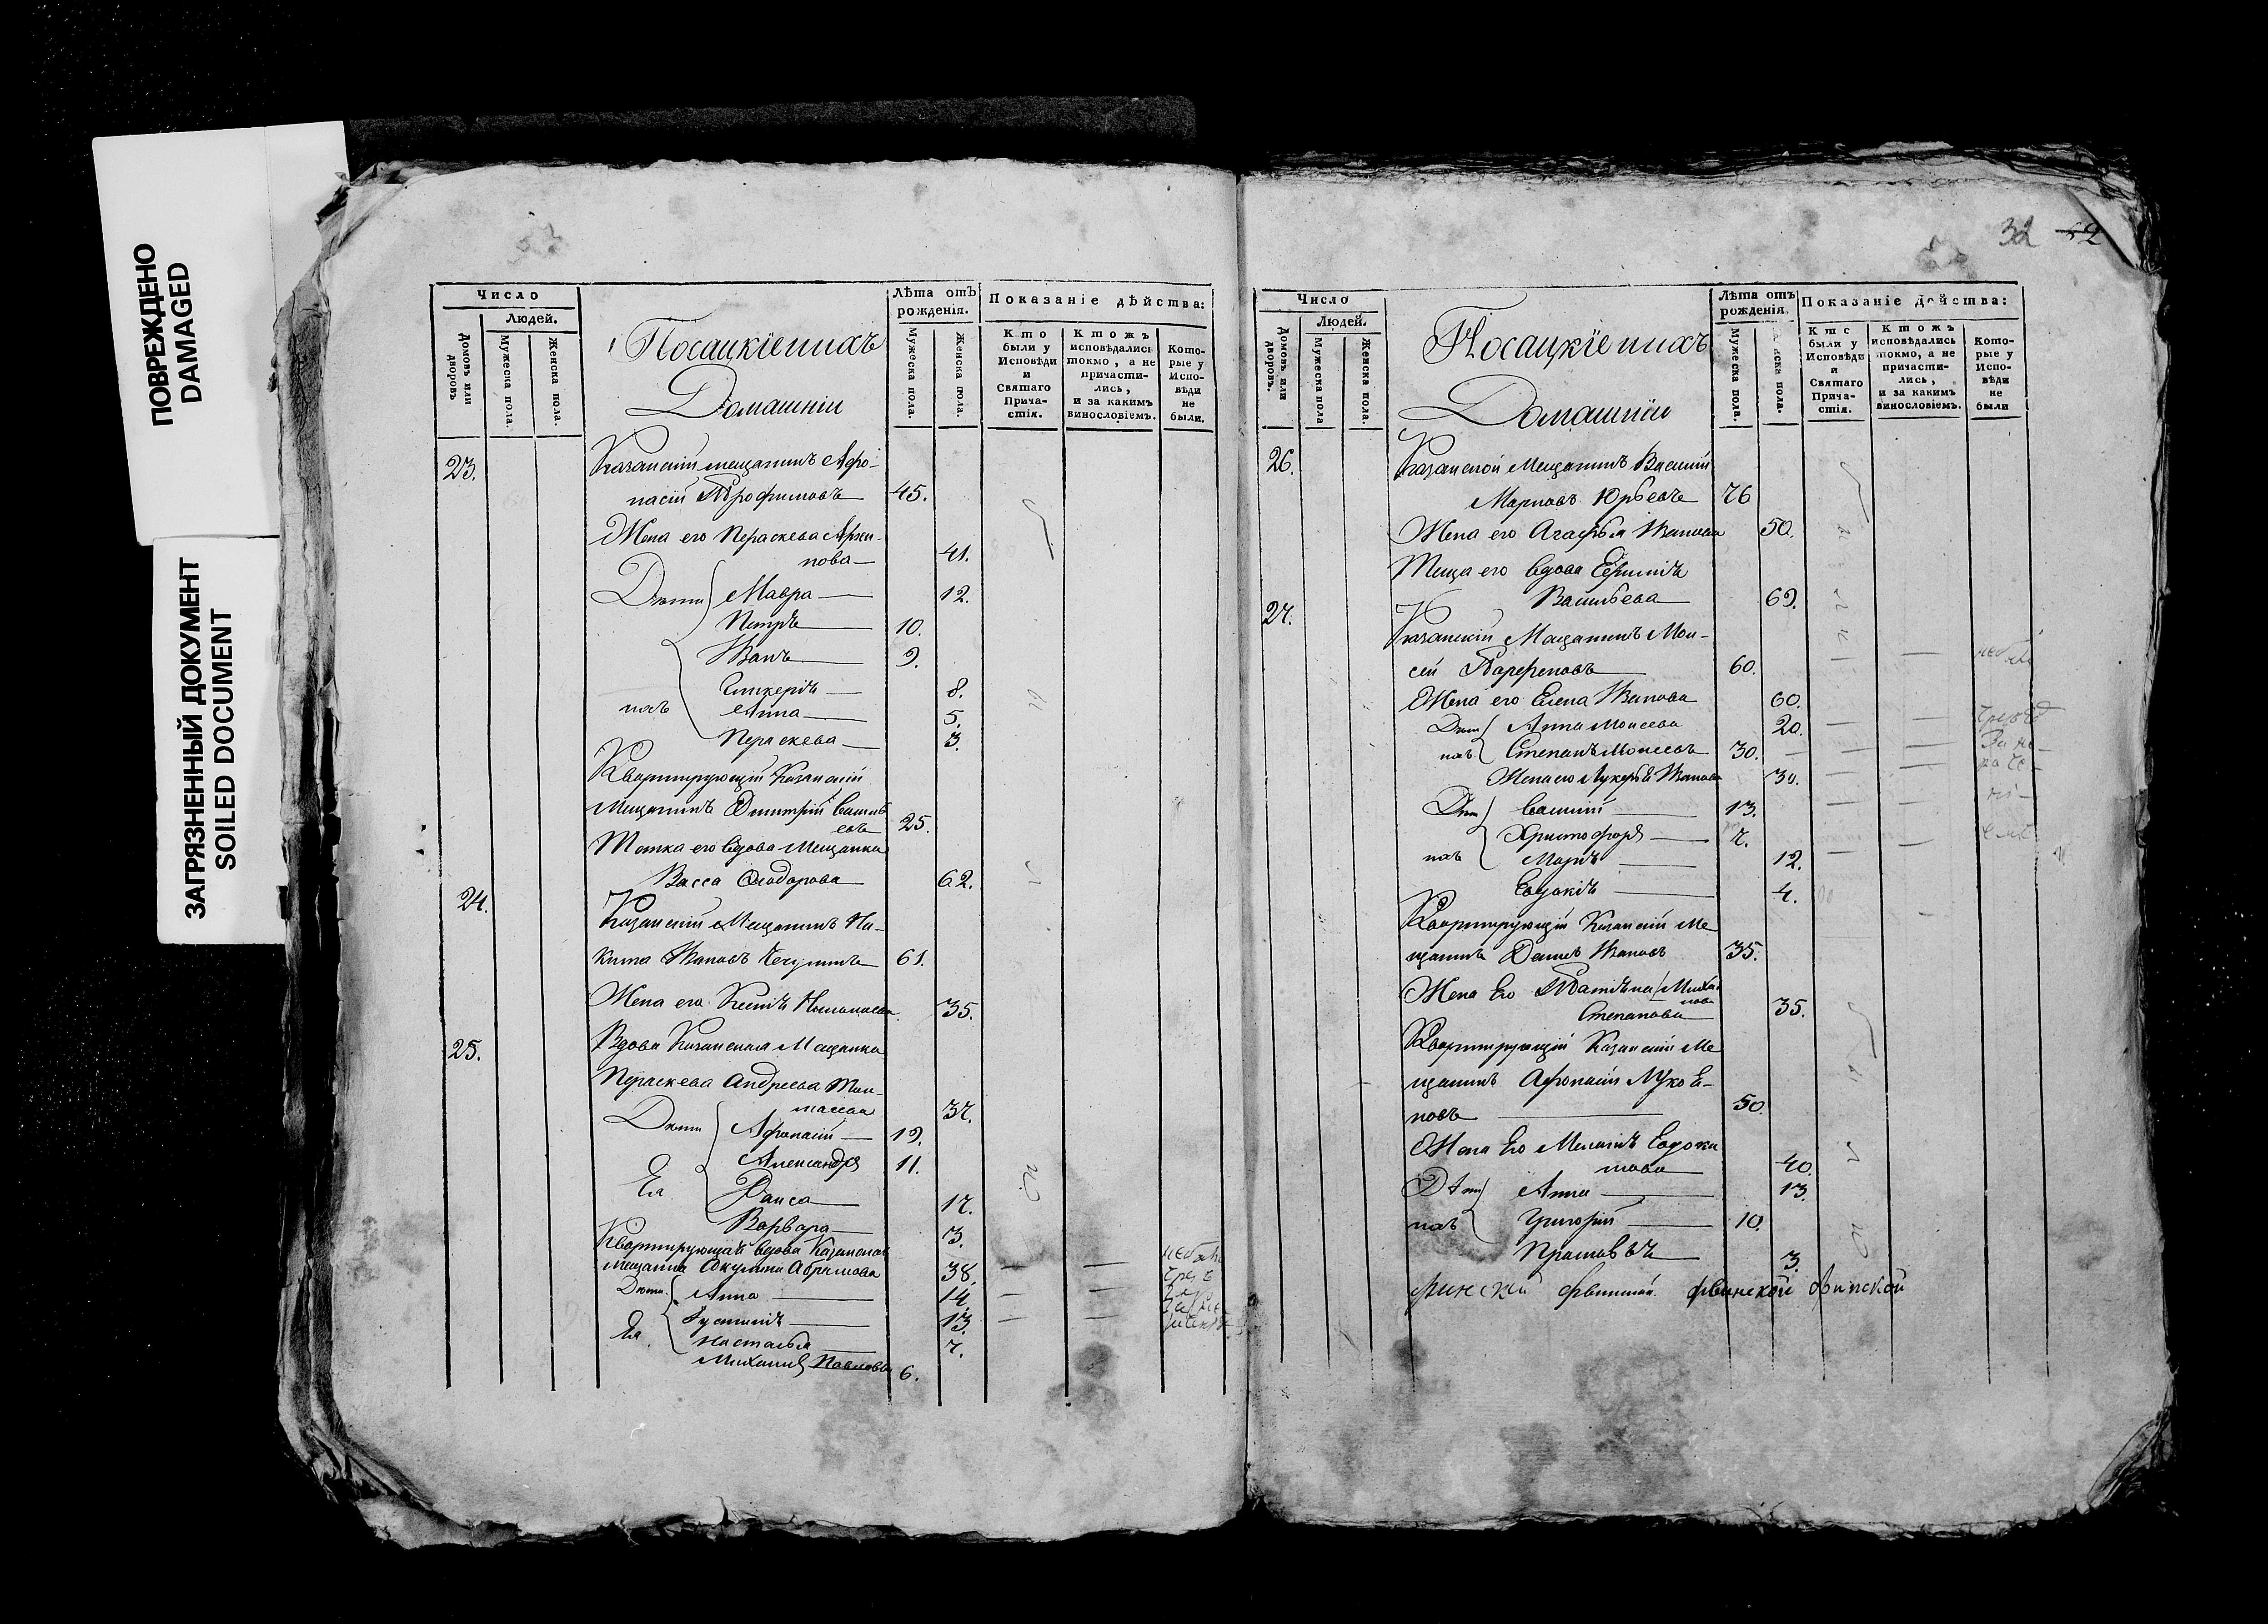 ПОВРЕЖДЕНО
DAMAGED
ЗАГРЯЗНЕННЫЙ ДОКУМЕНТ
SOILED DOCUMENT
Число
Людей.
Домовъ или дворовъ
Мужеска пола.
Женска пола.
Посацкіе ихъ
Домашніи
Лѣта отъ рожденія.
Мужеска пола.
Женска пола.
Показаніе дѣйства:
Кто были у Исповѣди и Святаго Прича-стія.
Ктожъ исповѣдались токмо, а не причасти-лись, и за какимъ винословіемъ.
Кото-рые у Испо-вѣди не были.
23.
Казанскій мещанинъ Афо-
насій Трофимовъ 45.
Жена его Пераскева
нова 41.
Дѣти Мавра 12.
Петръ 10.
Иванъ 9.
Гликерія 8.
ихъ Анна 5.
Пераскева 3.
Квартирующій Казанскій
Мещанинъ Димитрій Василь
евъ 25.
Тетка его вдова Мещанка
Васса Феодорова 62.
24.
Казанскій Мещанинъ Ни-
кита Ивановъ 61.
Жена его Ксенія 35.
25.
Вдова Казанская Мещанка
Пераскева Андреева
37.
Дѣти Афонасій 19.
Александръ 11.
Ея Раиса 17.
Варвара 3.
Квартирующая вдова Казанская
мещанка Акулина Абрамова 38.
Дѣти Анна 14.
Іустинія 13.
Ея Настасья 7.
Михаилъ Павловъ 6.
32 52
Число
Людей.
Домовъ или дворовъ.
Мужеска пола
Женска пола.
Посацкіе ихъ
Домашніи
Лѣта отъ рожденія.
Мужеска пола.
нска пола.
Показаніе дѣйства:
Кто были у Исповѣди и Святаго Прича-стія.
Ктожъ исповѣдались токмо, а не причасти-лись, и за какимъ винословіемъ.
Кото-рые у Испо-вѣди не были
26.
Казанской Мещанинъ Василій
Марковъ Юрьевъ 76
Жена его Агафья Иванова 50.
Теща его вдова
Васильева 69.
27.
Казанскій Мещанинъ Мои-
сей Парфеновъ 60.
Жена его Елена Иванова 60.
Дѣти Анна Моисеева 20.
ихъ Степанъ Моисеевъ 30.
Жена его Лукерья Иванова 30.
Дѣти Василій 13.
Христофоръ 7.
ихъ Марія 12.
Евдокія 4.
Квартирующій Казанскій Ме
щанинъ Ивановъ 35.
Жена Его Татіана
Степанова 35.
Квартирующій Казанскій Ме
щанинъ Афонасій
новъ 50.
Жена Его Меланія Евдоки
мова 40.
Дѣти Анна 13.
ихъ Григорій 10.
3.